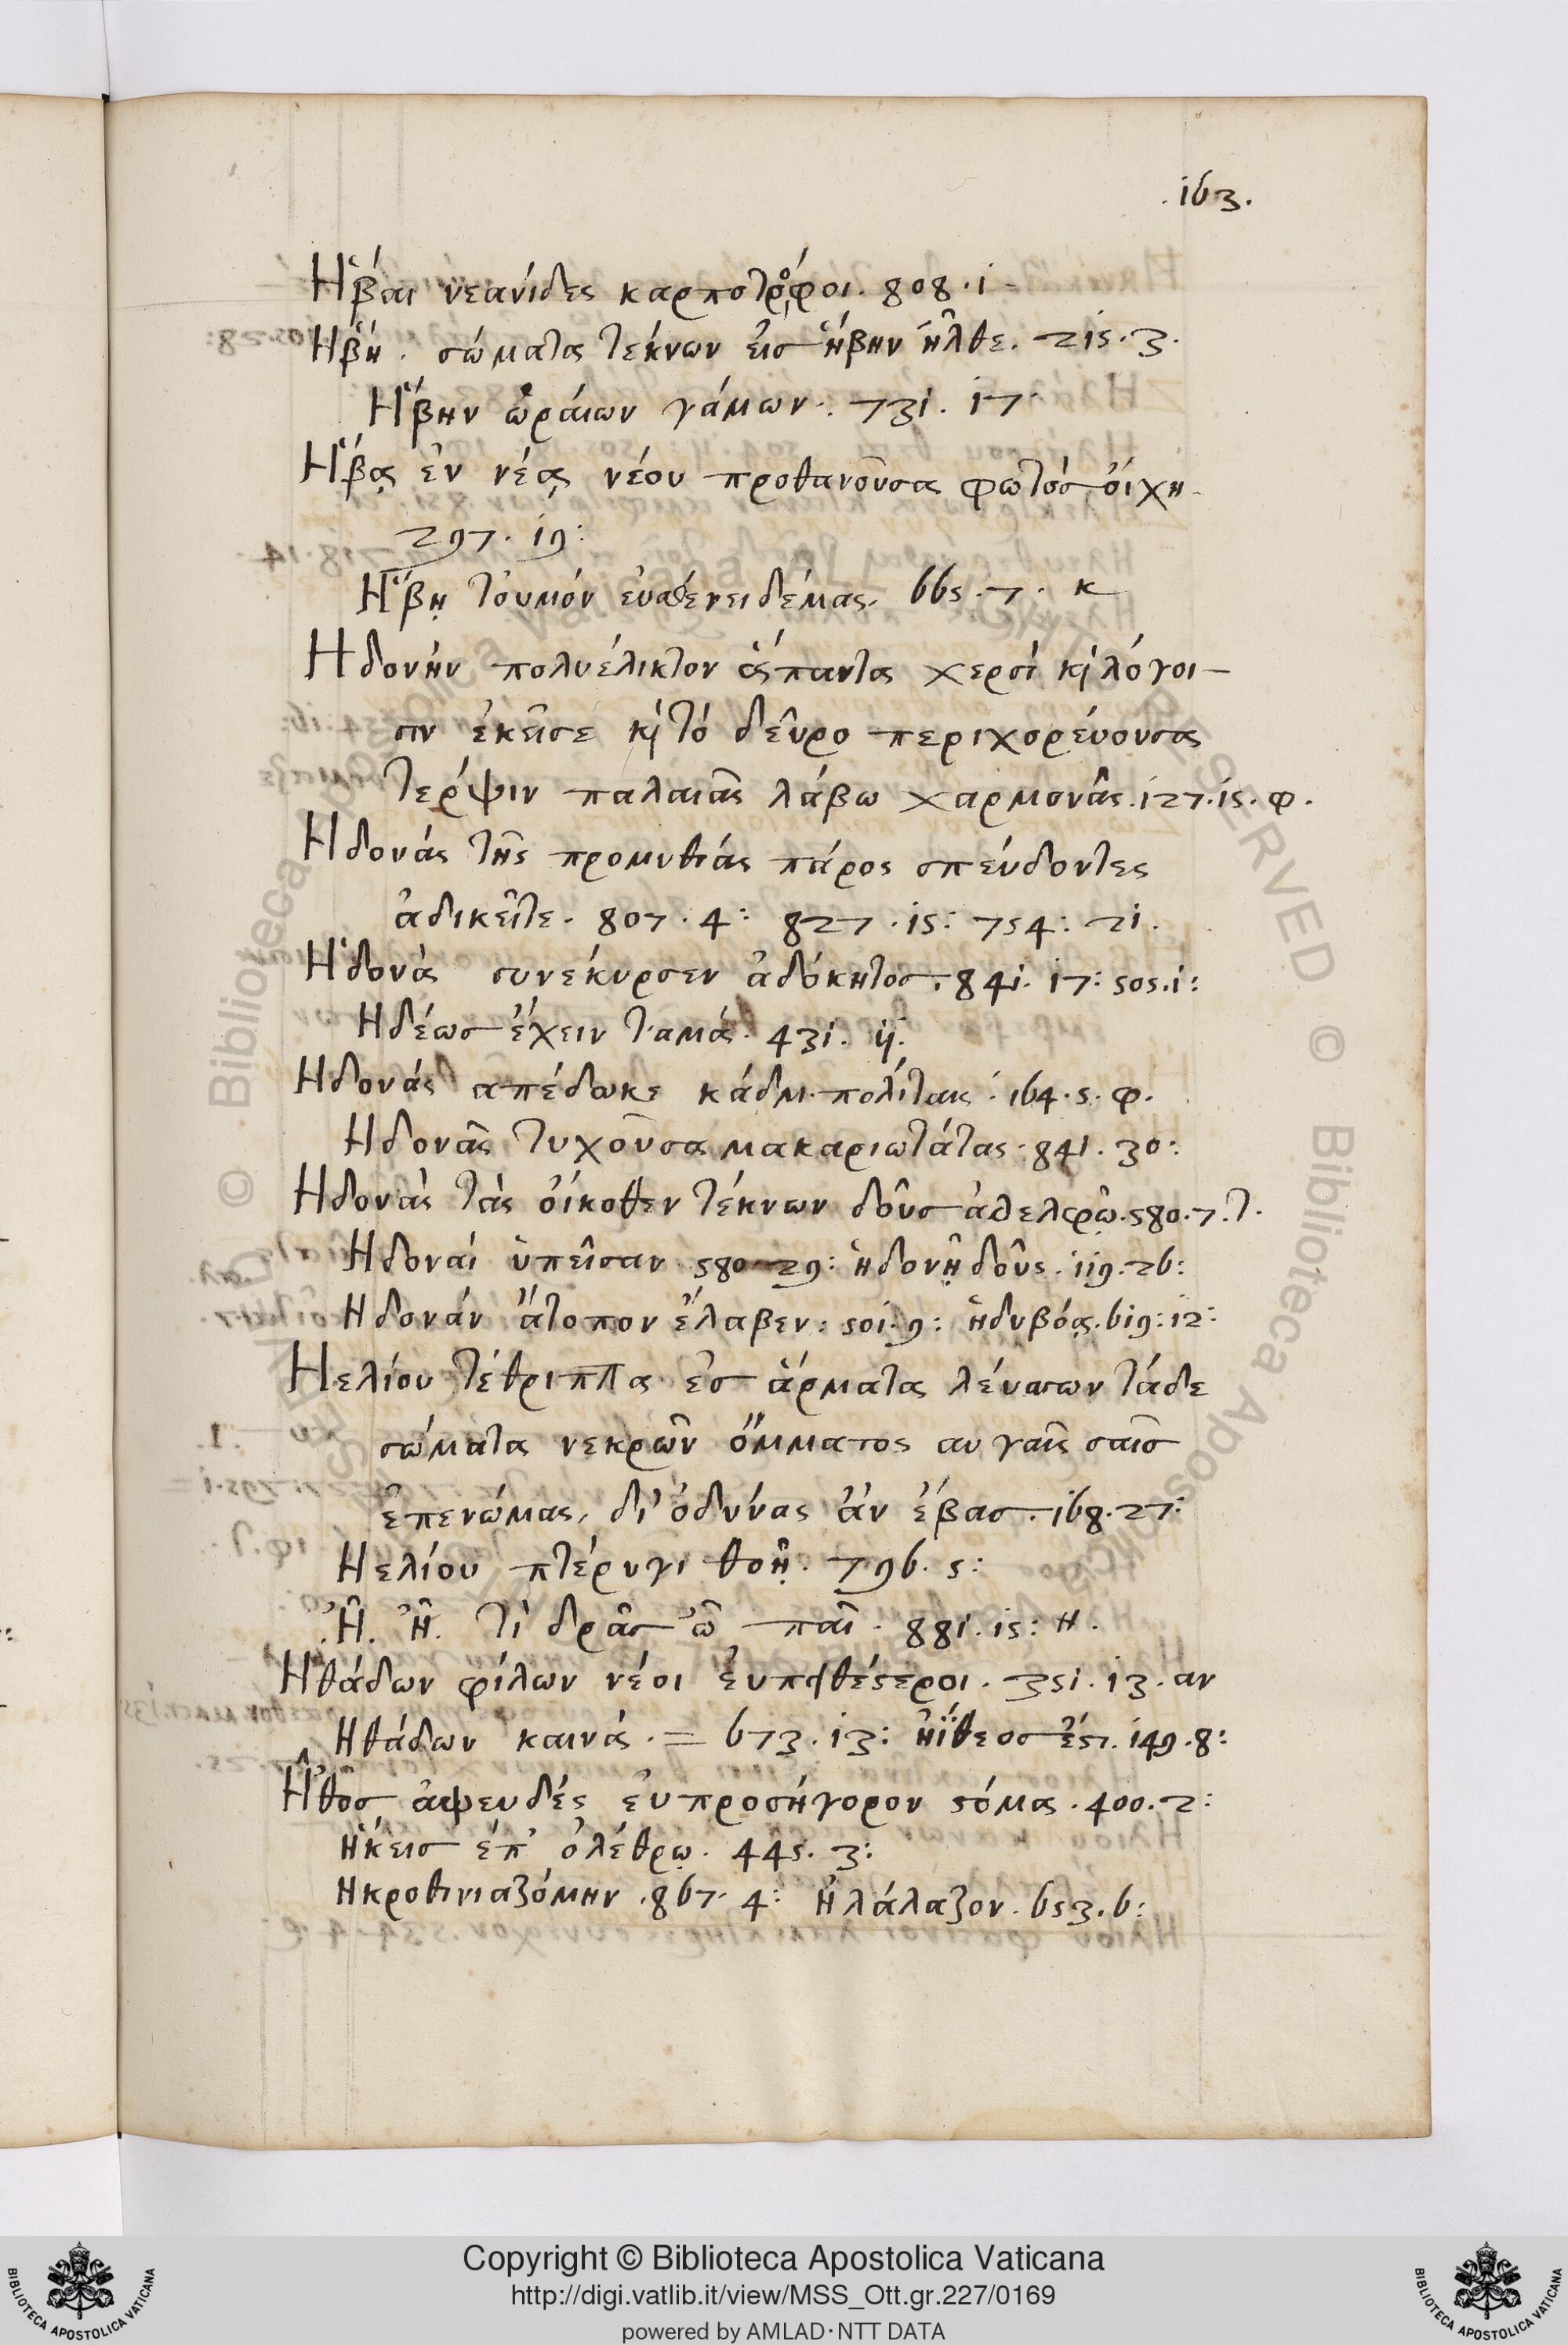 .163.
Ἥβαι νεανίδες καρποτρόφοι. 808.1
Ἥβη. σώματα τέκνων εἰσ ἥβην ἦλθε. 215.3.
Ἥβην ὡραίων γάμων. 731. 17.
Ἥβᾳς ἐν νέᾳς νέου προθανοῦσα φωτόσ οἴχη.
297. 19:
Ἥβῃ τοὐμόν εὐασθένει δέμας. 665.7. κ
Ηδονήν πολυέλικτον ἅπαντα χερσί κὶ λόγοι-
σιν ἐκεῖσέ κὶ τό δεῦρο περιχορεύουσα
τέρψιν παλαιᾶς λάβω χαρμονᾶς.127.15.φ.
Ηδονάς τῆς προμυθιάς πάρος σπεύδοντες
ἀδικεῖτε. 807.4: 827.15: 754: 21.
Ἡδονὰ συνέκυρσεν ἀδόκητος. 841. 17: 505.1:
Ηδέωσ ἔχειν τ'αμά. 431. 11.
Ηδονάς απέδωκε κάδμ. πολίταις. 164.5. φ.
Ηδονᾶς τυχοῦσα μακαριωτάτας. 841. 30:
Ηδονὰς τὰς οἴκοθεν τέκνων δοῦσ ἀδελφῷ.580.7.τ.
Ηδοναί ὑπεῖσαν 580 29: ἡδονῇ δοῦς. 119.26:
Ηδονάν ἄτοπον ἔλαβεν: 501.9: ἡδυβόᾳ.619:12:
Ηελίου τέθριππα ἐσ ἅρματα λεύσσων τάδε
σώματα νεκρῶν ὄμματος αυγαῖς σαῖσ
ἐπενώμας, δι' ὀδύνας ἂν ἔβασ. 168.27:
Ηελίου πτέρυγι θοῇ. 796. 5:
Ἦ. Ἦ. τί δρᾶσ ὦ παῖ. 881.15: Η.
Ηθάδων φίλων νέοι ἐυπιθέστεροι. 351. 13. αν
Ηθάδων καινά. = 673.13: ἠΐθεοσ ἔστ. 149.8:
Ἦθος ἀψευδές ἐυπροσήγορον στόμα. 400.2:
Ἥκεισ ἐπ' ὀλέθρῳ. 445. 3:
Ηκροθινιαζόμην. 867. 4: Ἠλάλαζον. 653.6:
Copyright © Biblioteca Apostolica Vaticana
http://digi.vatlib.it/view/MSS_Ott.gr.227/0169
powered by AMLAD·NTT DATA